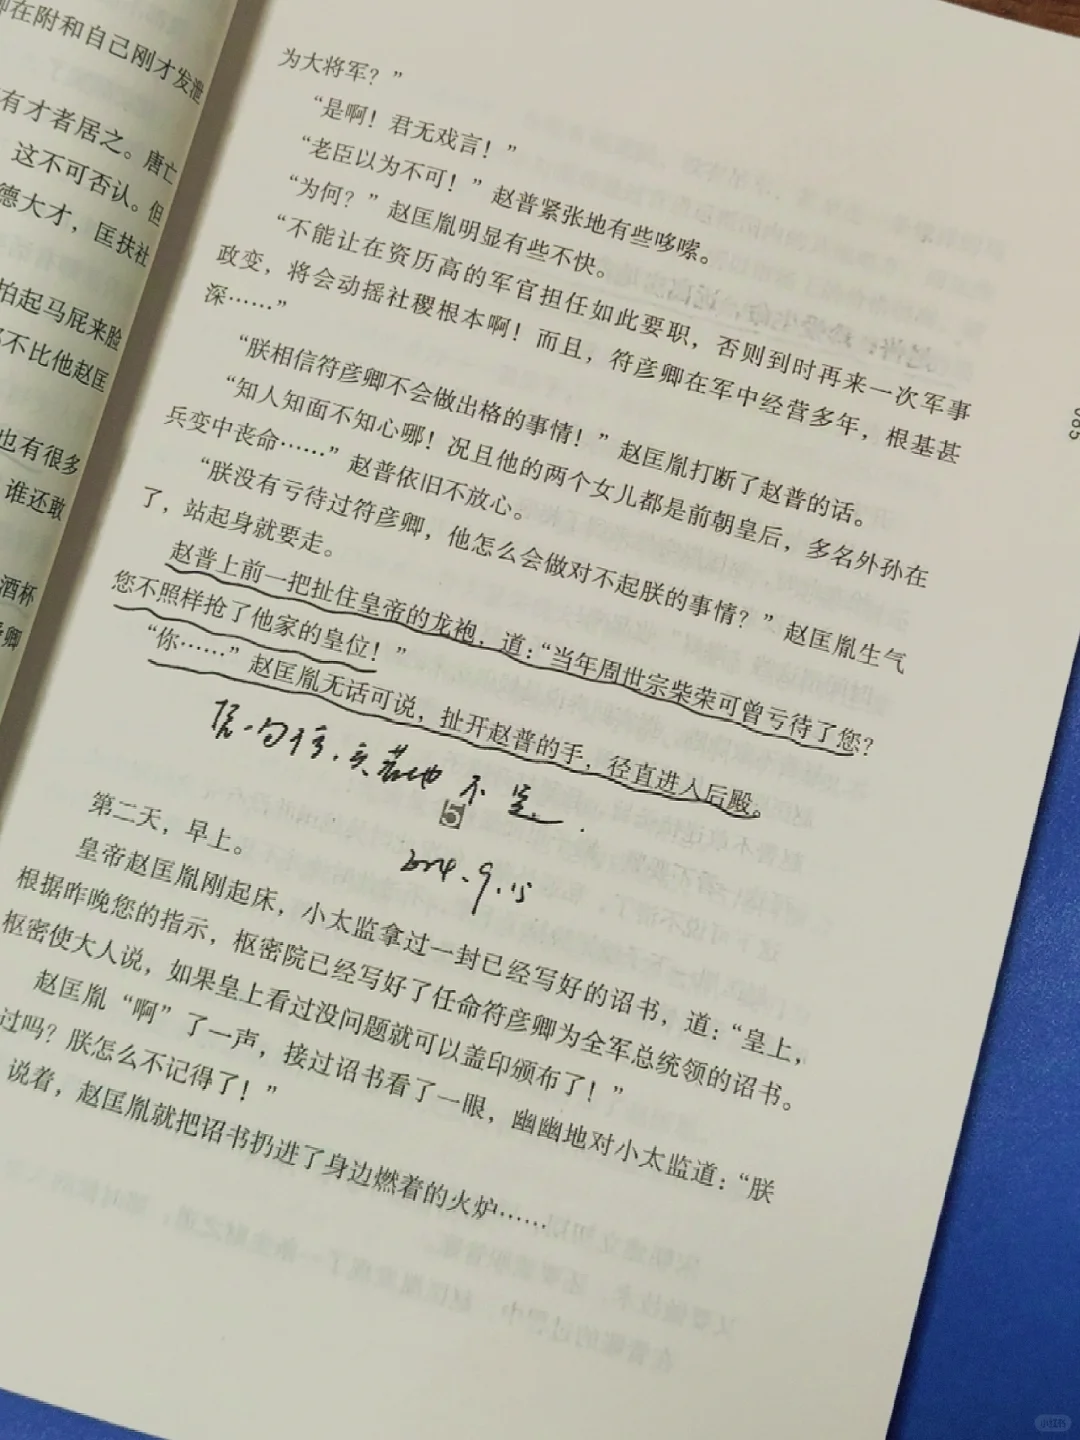 卿在附和自己刚才发泄
有才者居之。唐亡
这不可否认。但
德大才，匡扶社
拍起马屁来脸
不比他赵匡
也有很多
谁还敢
酒杯
彦卿
为大将军？”
“是啊！君无戏言！”
“老臣以为不可！”赵普紧张地有些哆嗦。
“为何？”赵匡胤明显有些不快。
“不能让在资历高的军官担任如此要职，否则到时再来一次军事
政变，将会动摇社稷根本啊！而且，符彦卿在军中经营多年，根基甚
深……”
“朕相信符彦卿不会做出格的事情！”赵匡胤打断了赵普的话。
“知人知面不知心哪！况且他的两个女儿都是前朝皇后，多名外孙在
兵变中丧命……”赵普依旧不放心。
“朕没有亏待过符彦卿，他怎么会做对不起朕的事情？”赵匡胤生气
了，站起身就要走。
赵普上前一把扯住皇帝的龙袍，道：“当年周世宗柴荣可曾亏待了您？
您不照样抢了他家的皇位！”
“你……”赵匡胤无话可说，扯开赵普的手，径直进入后殿。
5
9.15
第二天，早上。
皇帝赵匡胤刚起床，小太监拿过一封已经写好的诏书，道：“皇上，
根据昨晚您的指示，枢密院已经写好了任命符彦卿为全军总统领的诏书。
枢密使大人说，如果皇上看过没问题就可以盖印颁布了！”
赵匡胤“啊”了一声，接过诏书看了一眼，幽幽地对小太监道：“朕
过吗？朕怎么不记得了！”
说着，赵匡胤就把诏书扔进了身边燃着的火炉……
085
小红书